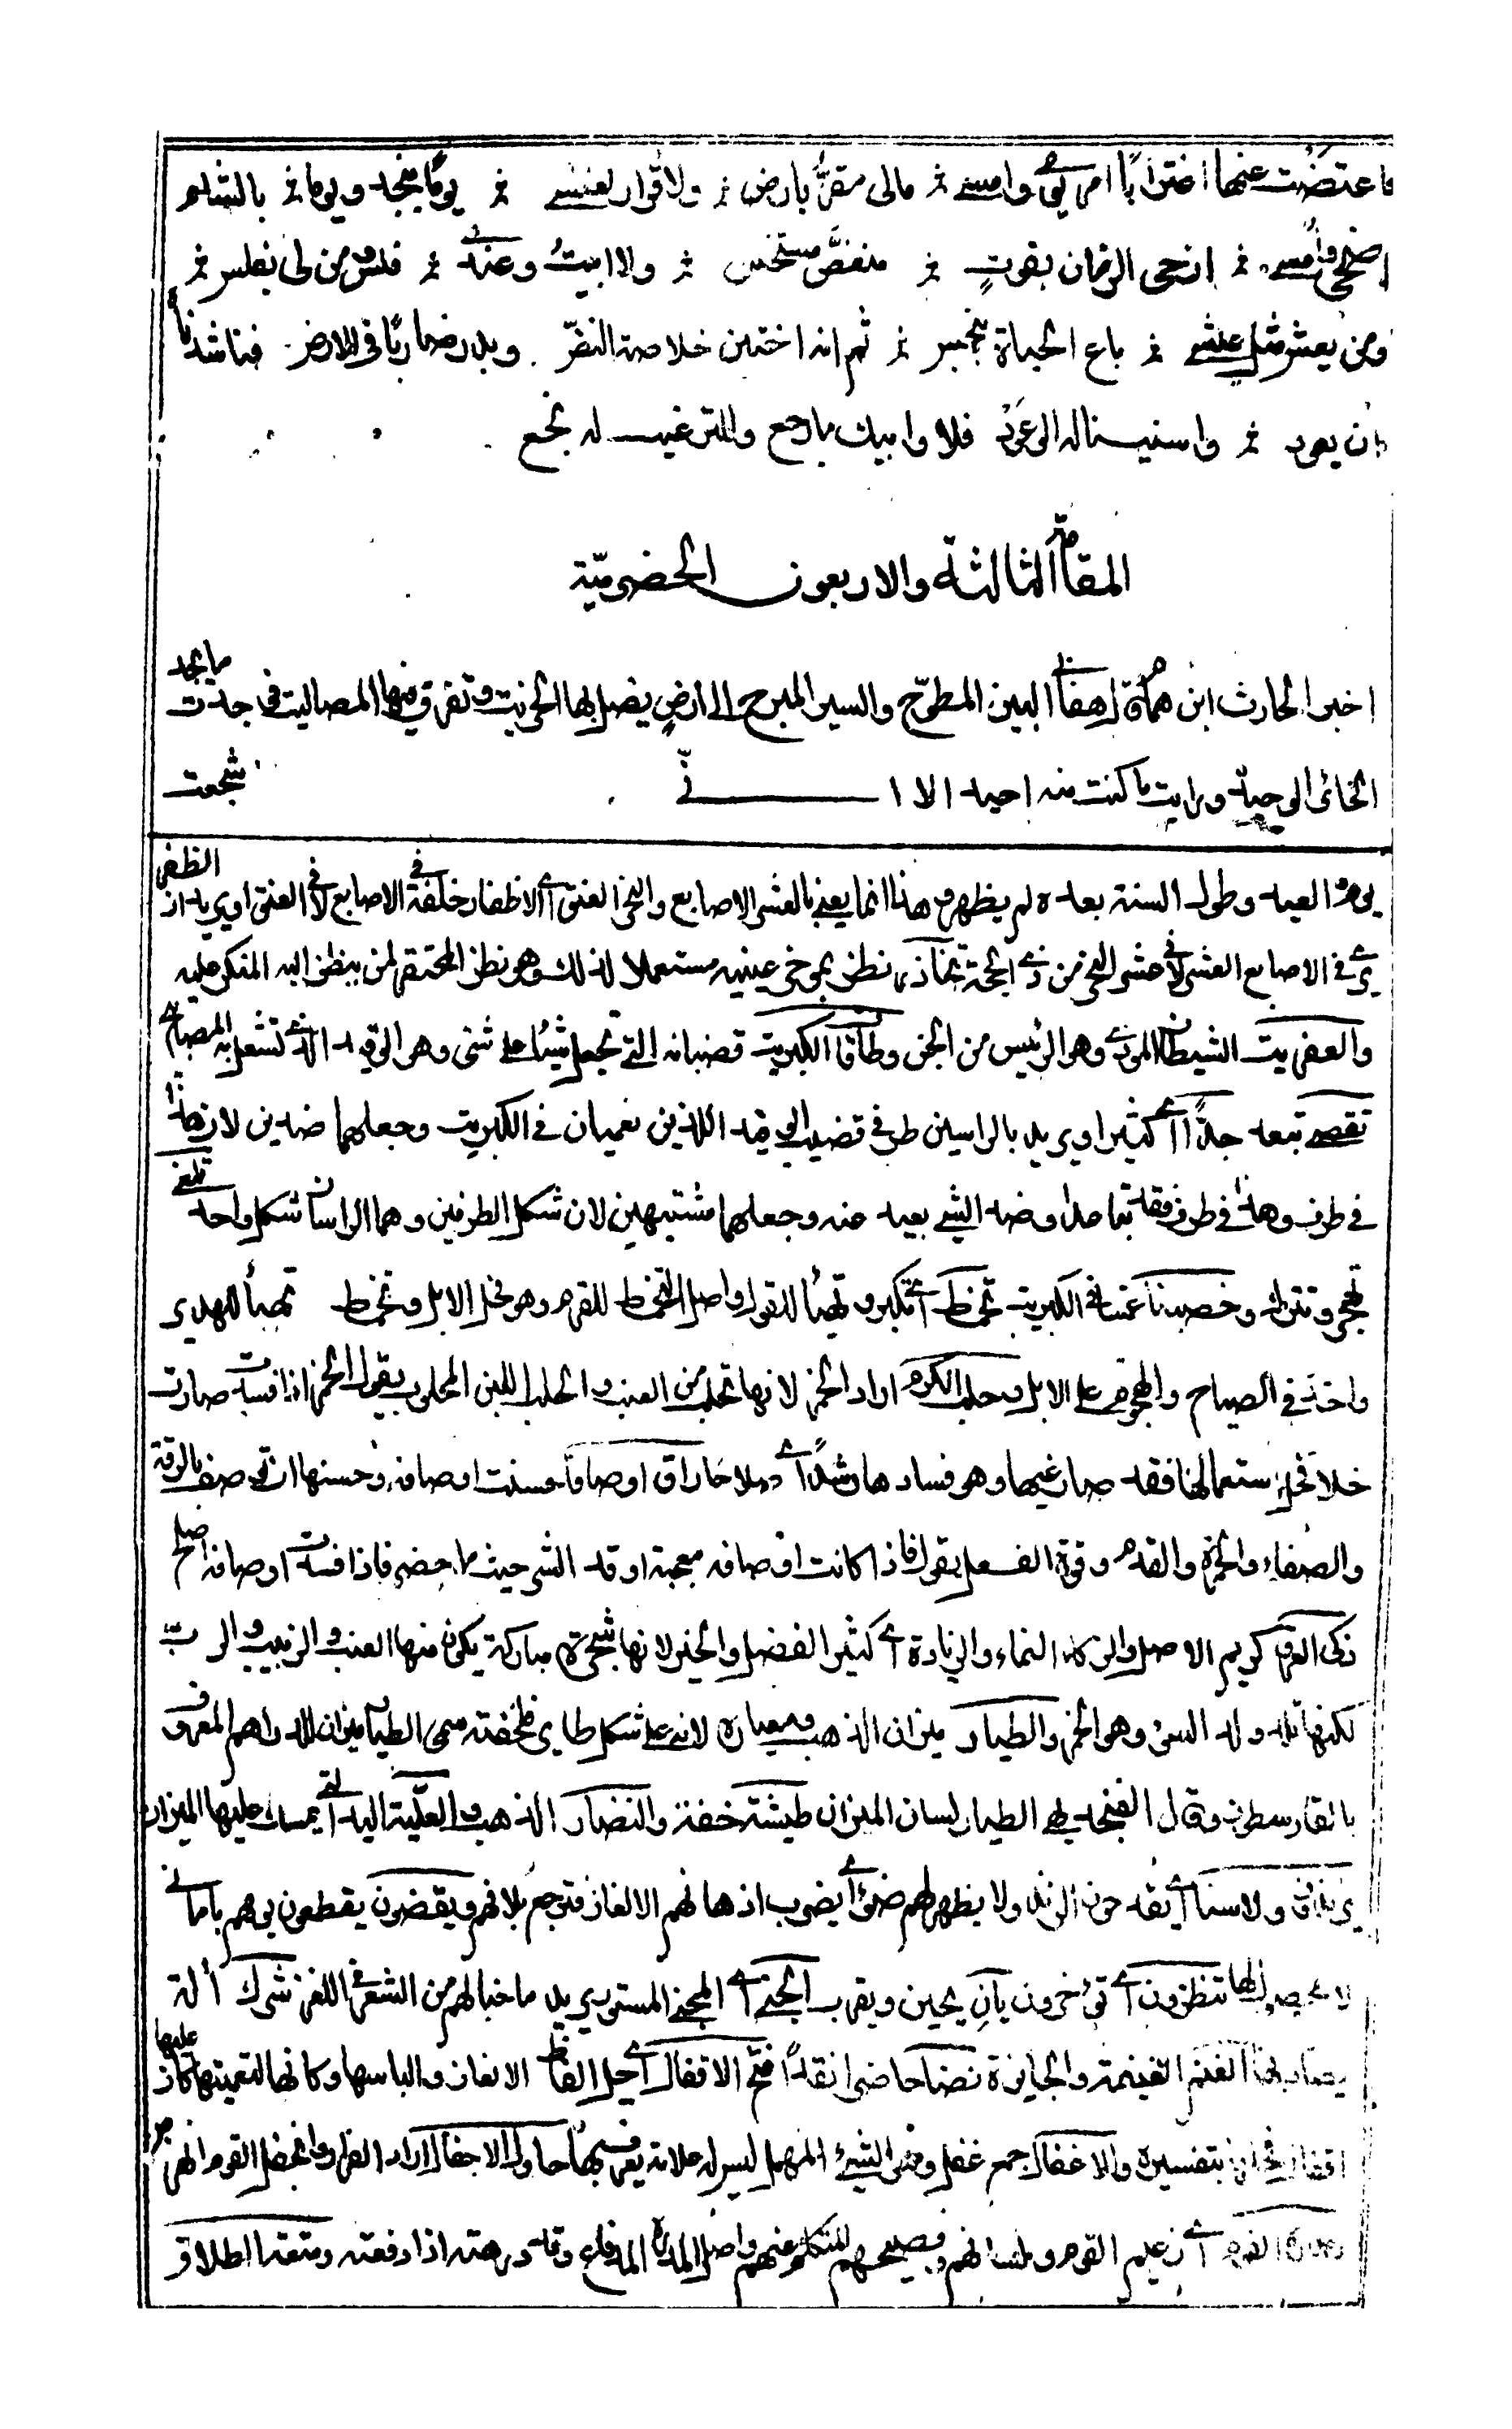 فاعتضت عنها اغترابا امر يومي وامسي ۞ مالي مقر بارض ۞ ولا قرار لعنسي ۞ يوما بنجد ويوما ۞ بالشام
اضحي وامسي ۞ ازجي الزمان بقوت ۞ منغص مستخس ۞ ولا ابيت وعندي ۞ فلس ومن لي بفلس ۞
ومن يعش مثل عيشي ۞ باع الحياة ببخس ۞ ثم انه اختبن خلاصة النض وبدر ضاربا في الارض فناشدناه
ان يعود ۞ واسنينا له الوعود فلا وابيك ما رجع ولا الترغيب له نجع
المقامة الثالثة والاربعون الحضرمية
اخبر الحارث ابن همام قال هفا بي البين المطوح والسير المبرح الى ارض يضل بها الخريت وتفرق فيها المصاليت فوجدت ما يجد
الحائر الوحيد ورايت ما كنت منه احيد الا اني شجعت
يوم العيد وطول السنة بعده لم يظهر هذا انما يعني بالعشر الاصابع والنحر العنق اي الاظفار خلقة في الاصابع لا في العنق او يريد ان الظفر
يرى في الاصابع العشر لا في عشر النحر من ذي الحجة تخازر نظر بموخر عينيه مستعملا لذلك وهو نظر المحتقر لمن ينظر اليه المنكر عليه
والعفريت الشيطان الموذي وهو الرئيس من الجن وطاقا الكبريت قضبانه التي تجعل شيئا على شئ وهو الوقيد الذي تشعل به المصابح
تقصيه تبعده جدا اي كثيرا ويريد بالراسين طرفي قضيب الوقيد اللذين يغمسان في الكبريت وجعلهما ضدين لان هذا
في طرف وهذا في طرف فقد تباعدا وضد الشئ بعيد عنه وجعلهما مشتبهين لان شكل الطرفين وهما الراسان شكل واحد تلغى
تهجر وتترك وخصبنا غمسا في الكبريت تخمط اي تكبر وتهيأ للقول واصل التخمط للقرم وهو فحل الابل وتخمط تهيأ للهدير
واخذ في الصياح والهجوم على الابل وحلب الكرم اراد الخمر لانها تحلب من العنب والحلب اللبن المحلوب يقول الخمر اذا فسدت صارت
خلا فحل استعمالها فقد صار غيها وهو فسادها رشدا اي صلاحا راق اوصافا حسنت اوصافه وحسنها ان توصف بالرقة
والصفاء والحمرة والقدم وقوة الفعل يقول فاذا كانت اوصافه معجبة اوقد الشر حيث ما حضر فاذا فسدت اوصافه اصلح
زكى العرق كريم الاصل والزكاء النماء والزيادة اي كثير الفضل والخير لانها شجرة مباركة يكون منها العنب والزبيب والرب
لكنها تلد ولد السوء وهو الخمر والطيار ميزان الذهب ومعياره لانه على شكل طاير فلخفته سمى الطيار ميزان للدراهم المعروف
بالقارسطون وقال الفنجديهي الطيار لسان الميزان طيشته خفته والنضار الذهب والعلية اليد التي يمسك عليها الميزان
ولا سنا اي يقدحون الزند ولا يظهر لهم ضوء اي يضرب اذهانهم الالغاز فترجع بلا فهم ويقضون يقطعون يومهم باماني
لا يحصولها تنظرون اي توخرون يان يحين ويقرب الخبئ اي المخبئ المستور يريد ما خبا لهم من الشعر في اللغز شرك الة
يصاد بها الغنم الغنيمة والجايزة نضا حاضرا نقدا فتح الاقفال اي حل الفاظ الالغاز والباسها وكانها لتعميتها كان عليها
اقفال بتفسيره والاغفال جمع غفل وهو الشئ المهمل ليس له علامة يعرف بها حاول الاجفال اراد الفرار وانجفل القوم انهز
القوم اي زعيم القوم ولسانهم وفصيحهم المتكلم عنهم واصل المدره المدافع وقد درهته اذا دفعته ومتعة الطلاق